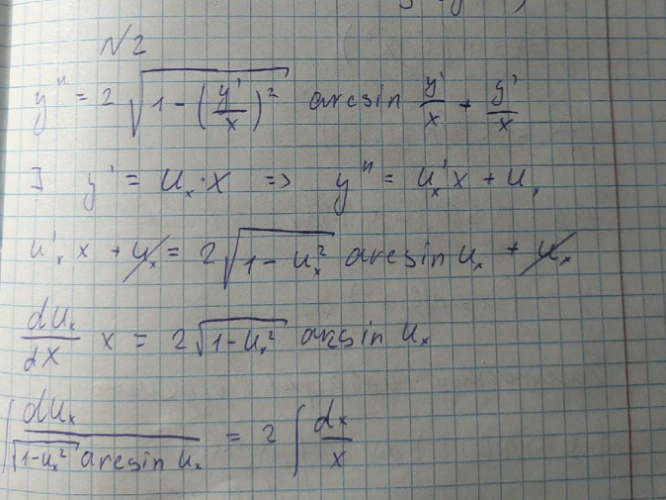 N2
y'' = 2 √(1 - (y'/x)²) arcsin y'/x + y'/x
∃ y' = Uₓ·x => y'' = U'ₓx + Uₓ
U'ₓ x + Uₓ = 2√(1 - Uₓ²) arcsin Uₓ + Uₓ
dUₓ/dx x = 2√(1-Uₓ²) arcsin Uₓ
∫ dUₓ/(√(1-Uₓ²) arcsin Uₓ) = 2 ∫ dx/x